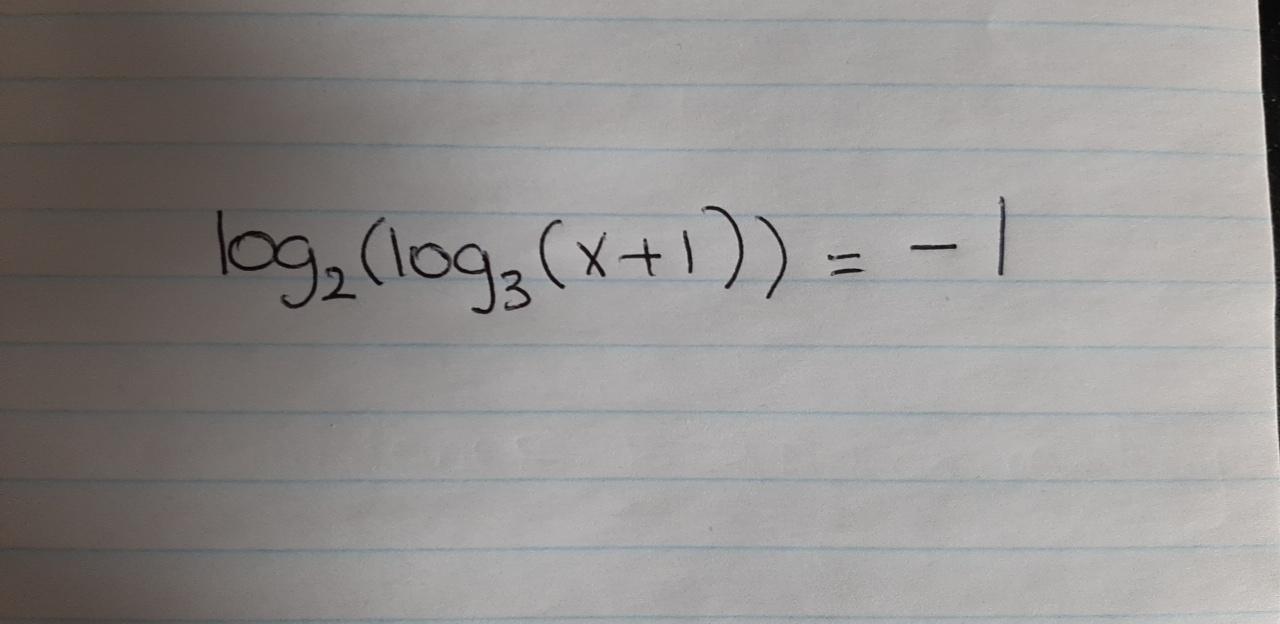 log₂(log₃(x+1)) = -1